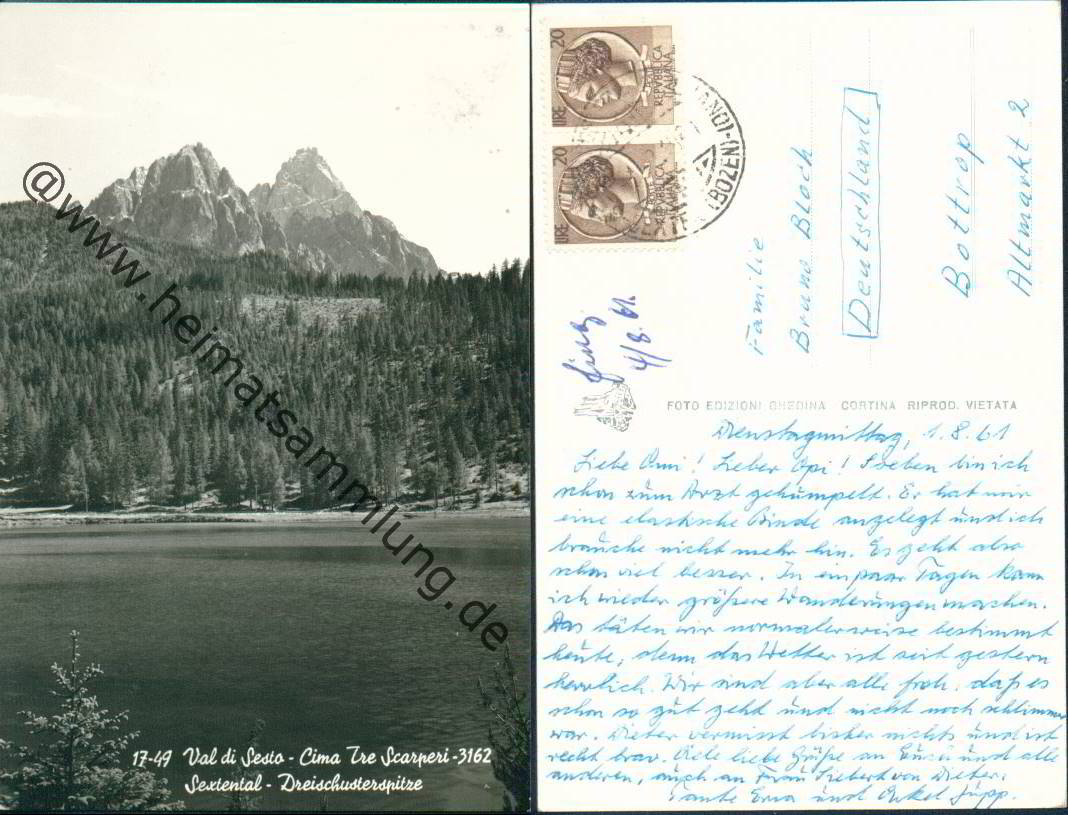 @www.heimatsammlung.de
17-49 Val di Sesto - Cima Tre Scarperi - 3162
Sextental - Dreischusterspitze
LIRE 20
REPVBBLICA
ITALIANA
LIRE 20
REPVBBLICA
ITALIANA
(BOZEN)
Familie
Bruno Bloch
Deutschland
Bottrop
Altmarkt 2
4/8. 61.
FOTO EDIZIONI GHEDINA CORTINA RIPROD. VIETATA
Dienstagmittag, 1.8.61
Liebe Omi! Lieber Opi! Soeben bin ich
schon zum Arzt gehumpelt. Er hat mir
eine elastische Binde angelegt und ich
brauche nicht mehr hin. Es geht also
schon viel besser. In ein paar Tagen kann
ich wieder größere Wanderungen machen.
Das täten wir normalerweise bestimmt
heute, denn das Wetter ist seit gestern
herrlich. Wir sind aber alle froh, daß es
schon so gut geht und nicht noch schlimmer
war. Dieter vermisst bisher nichts und ist
recht brav. Viele liebe Grüße an Euch und alle
anderen, auch an Frau Siebert von Dieter,
Tante Erna und Onkel Jupp.